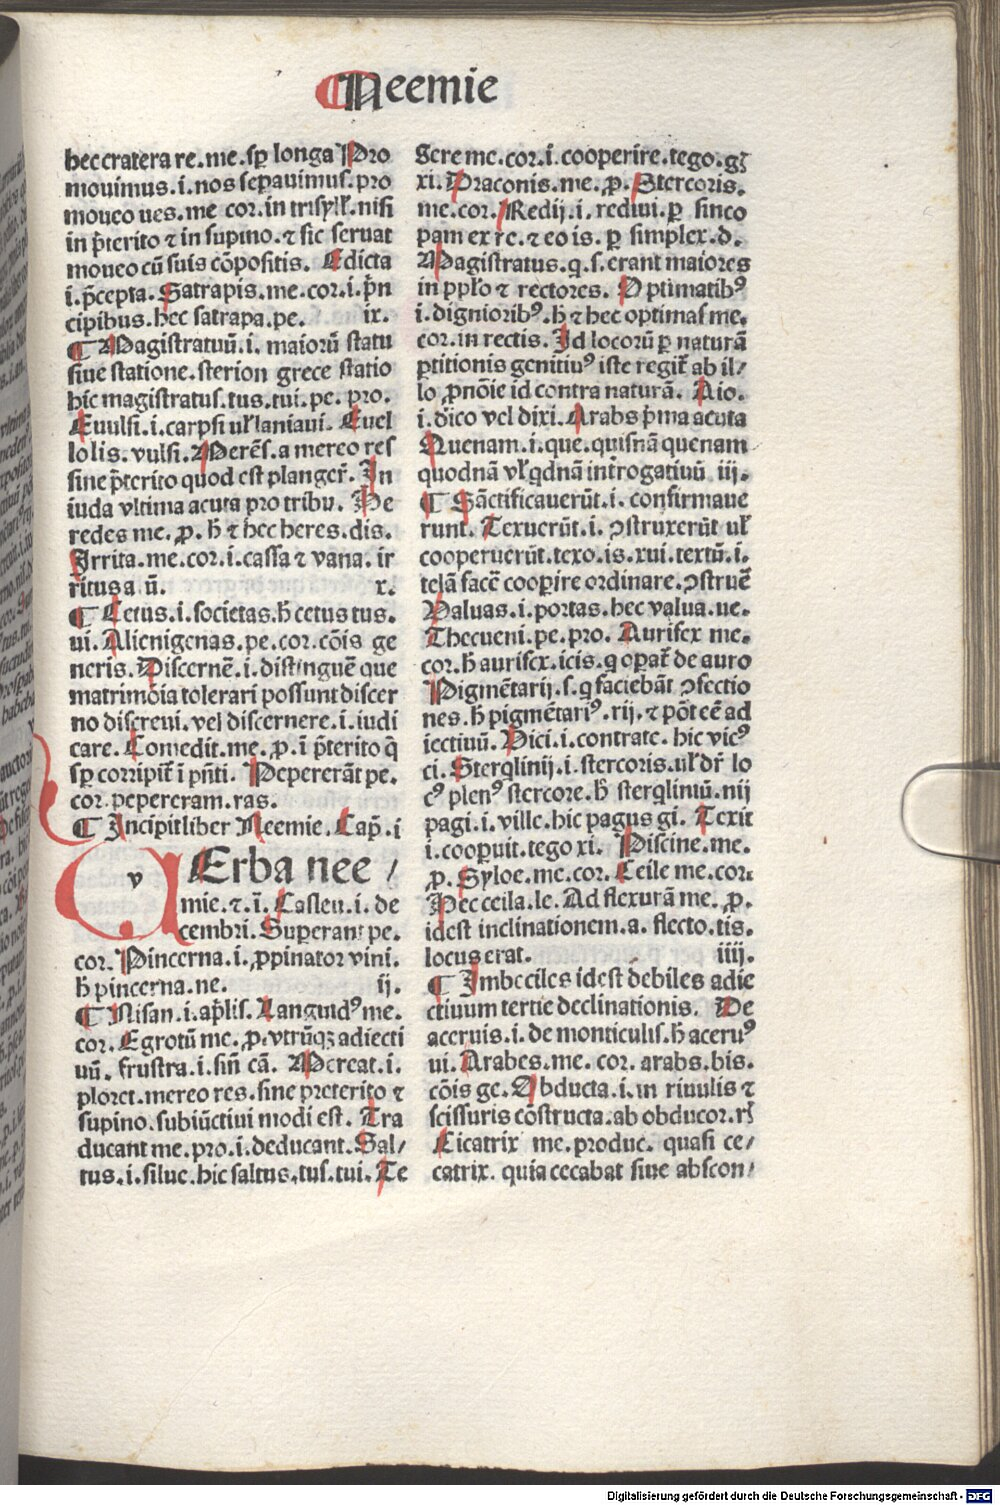 ¶ Neemie
hec cratera re.me.sꝑ longa Pro
mouimus.i.nos seꝑauimus.pro
moueo ues.me cor.in trisyll̄.nisi
in p̄terito ⁊ in supino.⁊ sic seruat
moueo cū suis cōpositis. Edicta
i.p̄cepta. Satrapis.me.cor.i.p̄n
cipibus.hec satrapa.pe. ix.
¶ Magistratuū.i. maiorū statu
siue statione.sterion grece statio
hic magistratus.tus.tui.pe. pro.
Euulsi.i.carpsi ul̄ laniaui. Euel
lo lis. vulsi. Merēs.a mereo res
sine p̄terito quod est plangeř. In
iuda vltima acuta pro tribu. He
redes me. ꝓ. h̄ ⁊ hec heres.dis.
Irrita.me.cor.i.cassa ⁊ vana. ir
ritus a ū. x.
¶ Cetus.i.societas.h̄ cetus tus.
ui. Alienigenas.pe.cor.cōis ge
neris. Discernē.i.distinguē que
matrimōia tolerari possunt discer
no discreui. vel discernere.i.iudi
care. Comedit.me.ꝓ.i p̄terito q̄
sꝑ corripit̄ i pn̄ti. Pepererāt pe.
cor.pepereram.ras.
¶ Incipit liber Neemie. Cap̄.i
v Erba nee /
mie.⁊.ī. Casleu.i.de
cembri. Superant pe.
cor. Pincerna.i. ꝓpinator vini.
h̄ pincerna.ne. ij.
¶ Nisan.i.ap̄lis. Languidꝰ me.
cor. Egrotū me. ꝓ.vtrūqꝫ adiecti
uū. frustra.i.sin̄ cā. Mereat.i.
ploret.mereo res.sine preterito ⁊
supino.subiūctiui modi est. Tra
ducant me.pro.i.deducant. Sal/
tus.i.silue.hic saltus.tus.tui. Te
gere me.cor.i.cooperire.tego.gꝫ
xi. Draconis.me.ꝓ. Stercoris.
me.cor. Redij.i.rediui.ꝑ sinco
pam ex re.⁊ eo is. ꝑ simplex.d.
Magistratus.q.s.erant maiores
in pplo ⁊ rectores. Optimatibꝰ
i.dignioribꝰ.h̄ ⁊ hec optimas me.
cor.in rectis. Id locorū ꝑ naturā
ꝑtitionis genitiuꝰ iste regit̄ ab il/
lo ꝓnōie id contra naturā. Aio.
i.dico vel dixi. Arabs p̄ma acuta
Quenam.i.que.quisnā quenam
quodnā vl̄ qdnā int̄rogatiuū iij.
¶ Sāctificauerūt.i.confirmaue
runt. Texuerūt.i.ꝯstruxerūt ul̄
cooperuerūt.texo.is.xui.textū.i.
telā facē cooꝑire ordinare.ꝯstruē
Valuas.i.portas.hec valua.ue.
Thecueni.pe.pro. Aurifex me.
cor.h̄ aurifex.icis.q oꝑat̄ de auro
Pigmētarij.s.q faciebāt ꝯfectio
nes.h̄ pigmētariꝰ.rij.⁊ pōt eē ad
iectiuū. Vici.i.contrate.hic vicꝰ
ci. Sterqlinij.i.stercoris.ul̄ dr̄ lo
cꝰ plenꝰ stercore.h̄ sterqliniū.nij
pagi.i.ville.hic pagus gi. Texit
i.cooꝑuit.tego xi. Piscine.me.
ꝓ. Syloe.me.cor. Ceile me.cor.
Hec ceila.le. Ad flexurā me. ꝓ.
idest inclinationem.a. flecto.tis.
locus erat. iiij.
¶ Imbeciles idest debiles adie
ctiuum tertie declinationis. De
aceruis.i.de monticulis.h̄ aceruꝰ
ui. Arabes.me. cor. arabs.bis.
cōis ge. Abducta.i.in riuulis ⁊
scissuris cōstructa.ab obducor.rꝭ
Cicatrix me.produc. quasi ce/
catrix. quia cecabat siue abscon/
Digitalisierung gefördert durch die Deutsche Forschungsgemeinschaft - DFG